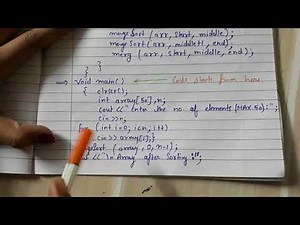 mergeSort (arr, start, middle);
mergeSort (arr, middle+1, end);
merg (arr, start, middle, end);
}
}
⇒ Void main() ← Code starts from here
{ clrscr();
int array[50], n;
cout <<"Enter the no. of elements (MAX.50):";
cin >>n;
for (int i=0; i<n; i++)
cin >> array[i];}
Sort (array, 0, n-1);
<<"\n Array after Sorting:";